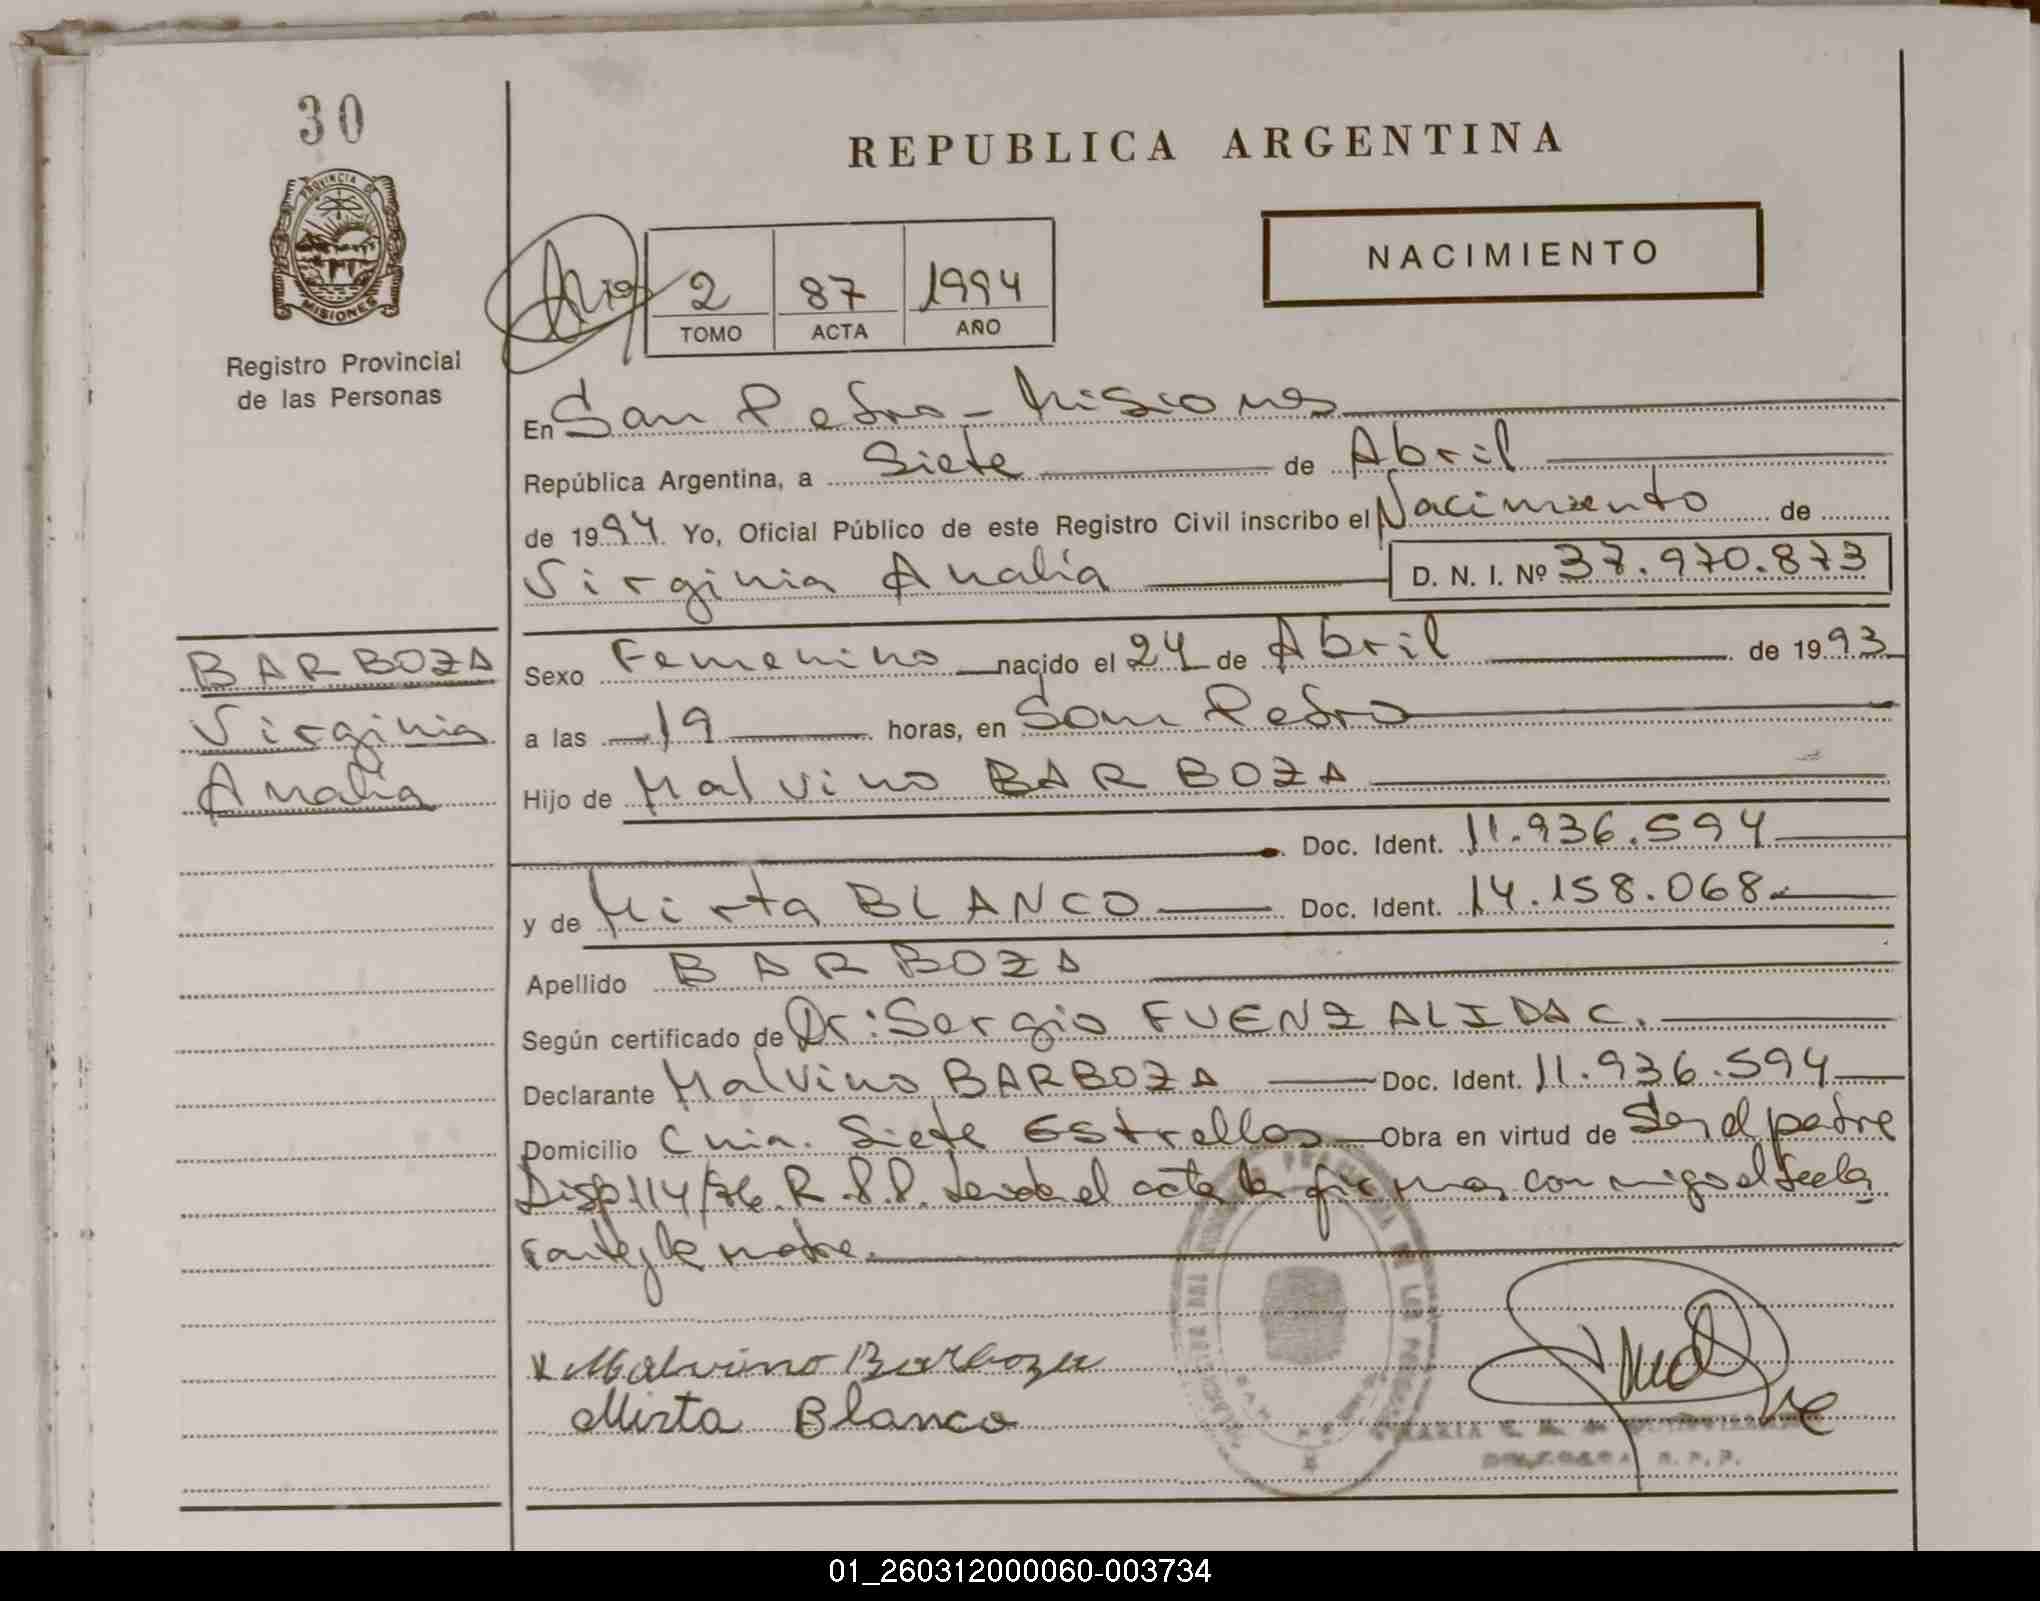 30
REPUBLICA ARGENTINA
PROVINCIA DE
MISIONES
Registro Provincial
de las Personas
NACIMIENTO
2 87 1994
TOMO ACTA AÑO
En San Pedro - Misiones
República Argentina, a Siete de Abril
de 1994 Yo, Oficial Público de este Registro Civil inscribo el Nacimiento de
Virginia Analía D. N. I. Nº 37.970.873
BARBOZA
Virginia
Analía
Sexo Femenino nacido el 24 de Abril de 1993
a las 19 horas, en San Pedro
Hijo de Malvino BARBOZA
Doc. Ident. 11.936.594
y de Mirta BLANCO Doc. Ident. 14.158.068
Apellido BARBOZA
Según certificado de Dr: Sergio FUENZALIDA C.
Declarante Malvino BARBOZA Doc. Ident. 11.936.594
Domicilio Cnia. Siete Estrellas Obra en virtud de Ser el padre
Disp. 114/76. R.P.P. Leida el acta la firman conmigo el decla
rante y la madre.
x Malvino Barboza
Mirta Blanco
MARIA
R.P.P.
01_260312000060-003734